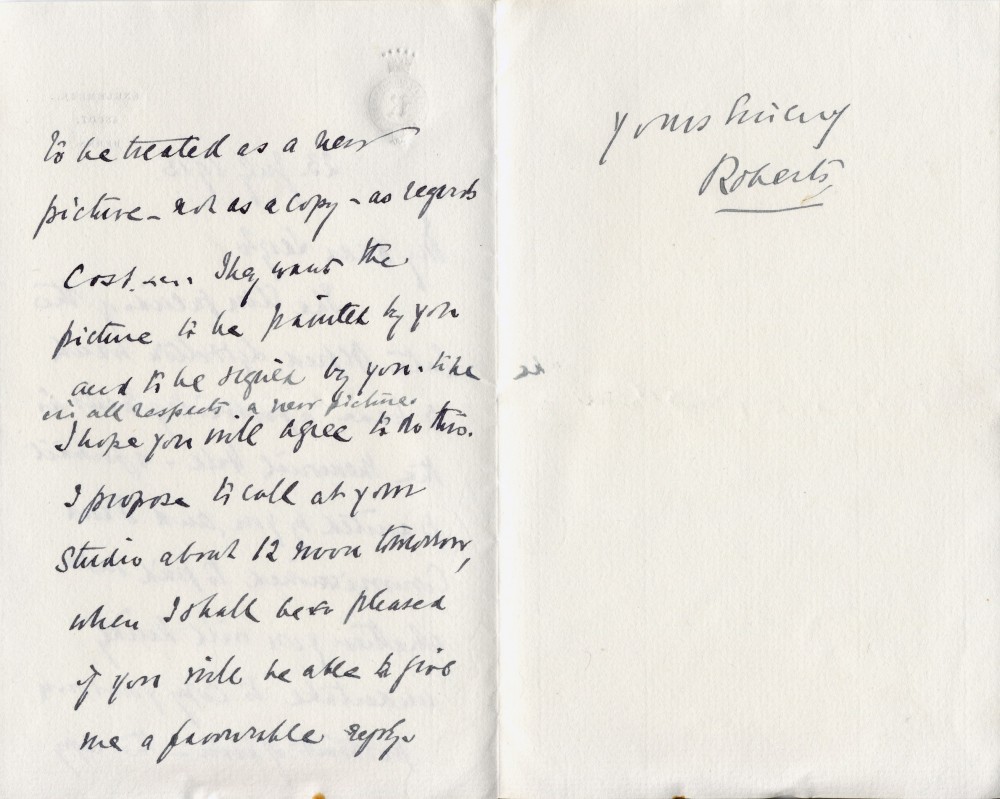 to be treated as a new
picture – not as a copy – as regards
cost. They want the
picture to be painted by you
and to be signed by you. like
in all respects a new picture.
I hope you will agree to do this.
I propose to call at your
Studio about 12 noon tomorrow,
when I shall be so pleased
if you will be able to give
me a favourable reply.
Yours sincerely
Roberts